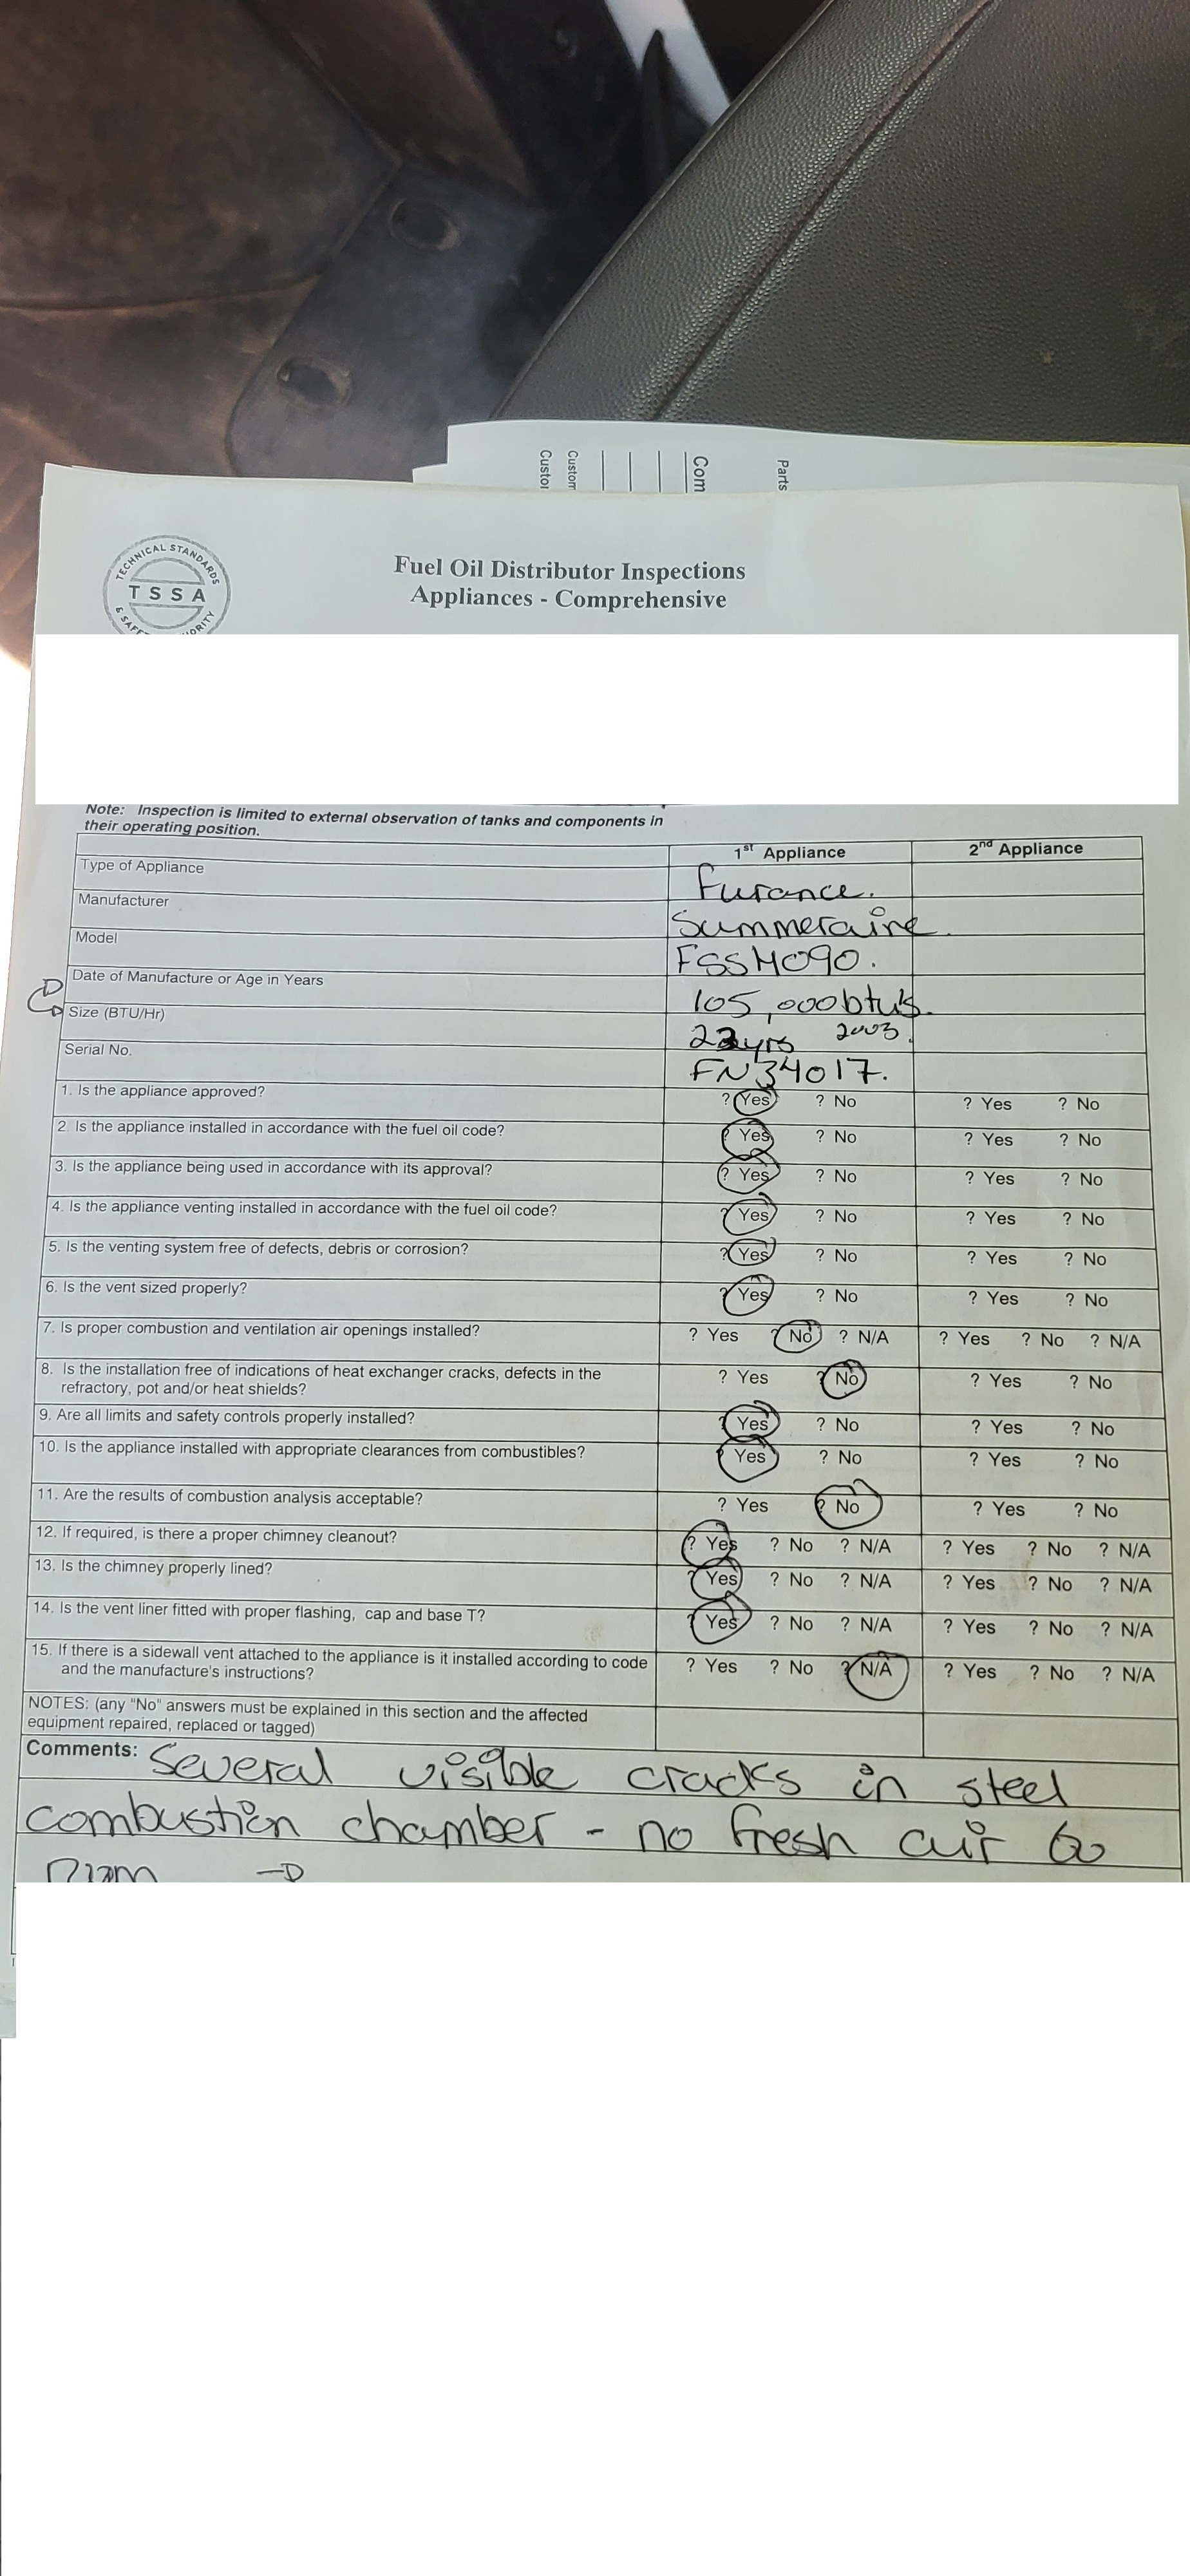 Custor
Custom
Com
Parts
TECHNICAL STANDARDS
TSSA
& SAFE ORITY
Fuel Oil Distributor Inspections
Appliances - Comprehensive
Note: Inspection is limited to external observation of tanks and components in
their operating position.
1st Appliance 2nd Appliance
Type of Appliance Furance.
Manufacturer Summeraire.
Model FSSM090.
Date of Manufacture or Age in Years 105,000btu's.
Size (BTU/Hr) 22yrs 2003.
Serial No. FN34017.
1. Is the appliance approved? ? Yes ? No ? Yes ? No
2. Is the appliance installed in accordance with the fuel oil code? ? Yes ? No ? Yes ? No
3. Is the appliance being used in accordance with its approval? ? Yes ? No ? Yes ? No
4. Is the appliance venting installed in accordance with the fuel oil code? ? Yes ? No ? Yes ? No
5. Is the venting system free of defects, debris or corrosion? ? Yes ? No ? Yes ? No
6. Is the vent sized properly? ? Yes ? No ? Yes ? No
7. Is proper combustion and ventilation air openings installed? ? Yes ? No ? N/A ? Yes ? No ? N/A
8. Is the installation free of indications of heat exchanger cracks, defects in the
refractory, pot and/or heat shields? ? Yes ? No ? Yes ? No
9. Are all limits and safety controls properly installed? ? Yes ? No ? Yes ? No
10. Is the appliance installed with appropriate clearances from combustibles? ? Yes ? No ? Yes ? No
11. Are the results of combustion analysis acceptable? ? Yes ? No ? Yes ? No
12. If required, is there a proper chimney cleanout? ? Yes ? No ? N/A ? Yes ? No ? N/A
13. Is the chimney properly lined? ? Yes ? No ? N/A ? Yes ? No ? N/A
14. Is the vent liner fitted with proper flashing, cap and base T? ? Yes ? No ? N/A ? Yes ? No ? N/A
15. If there is a sidewall vent attached to the appliance is it installed according to code
and the manufacture's instructions? ? Yes ? No ? N/A ? Yes ? No ? N/A
NOTES: (any "No" answers must be explained in this section and the affected
equipment repaired, replaced or tagged)
Comments: Several visible cracks in steel
combustion chamber - no fresh air to